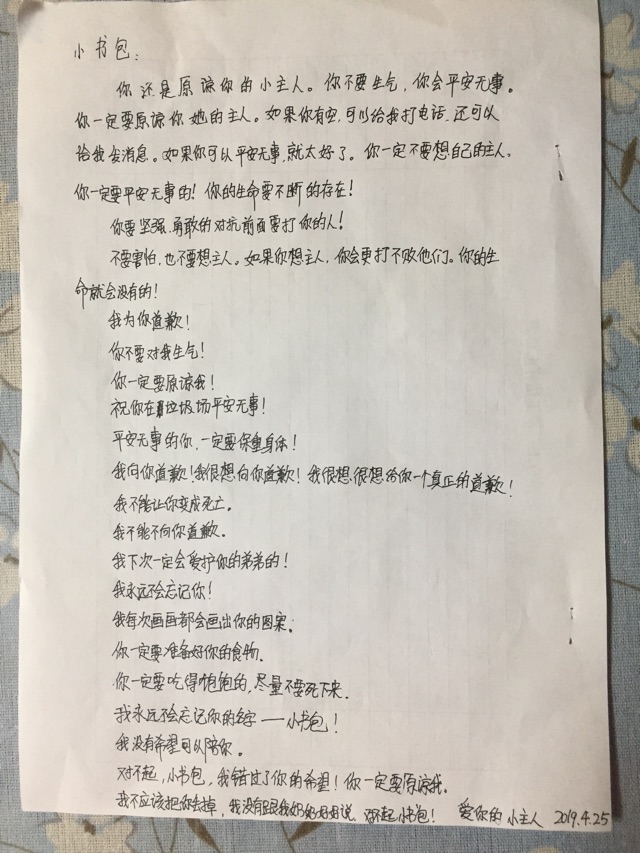 小书包：
你还是原谅你的小主人。你不要生气，你会平安无事。
你一定要原谅你她的主人。如果你有空，可以给我打电话，还可以
给我发消息。如果你可以平安无事，就太好了。你一定不要想自己的主人，
你一定要平安无事的！你的生命要不断的存在！
你要坚强，勇敢的对抗前面要打你的人！
不要害怕，也不要想主人。如果你想主人，你会更打不败他们。你的生
命就会没有的！
我为你道歉！
你不要对我生气！
你一定要原谅我！
祝你在垃圾场平安无事！
平安无事的你，一定要保重身体！
我向你道歉！我很想向你道歉！我很想很想给你一个真正的道歉！
我不能让你变成死亡。
我不能不向你道歉。
我下次一定会爱护你的弟弟的！
我永远不会忘记你！
我每次画画都会画出你的图案。
你一定要准备好你的食物。
你一定要吃得饱饱的，尽量不要死下来。
我永远不会忘记你的名字——小书包！
我没有希望可以陪你。
对不起，小书包，我错过了你的希望！你一定要原谅我。
我不应该把你丢掉，我没有跟我妈妈好好说，对不起小书包！ 爱你的小主人 2019.4.25